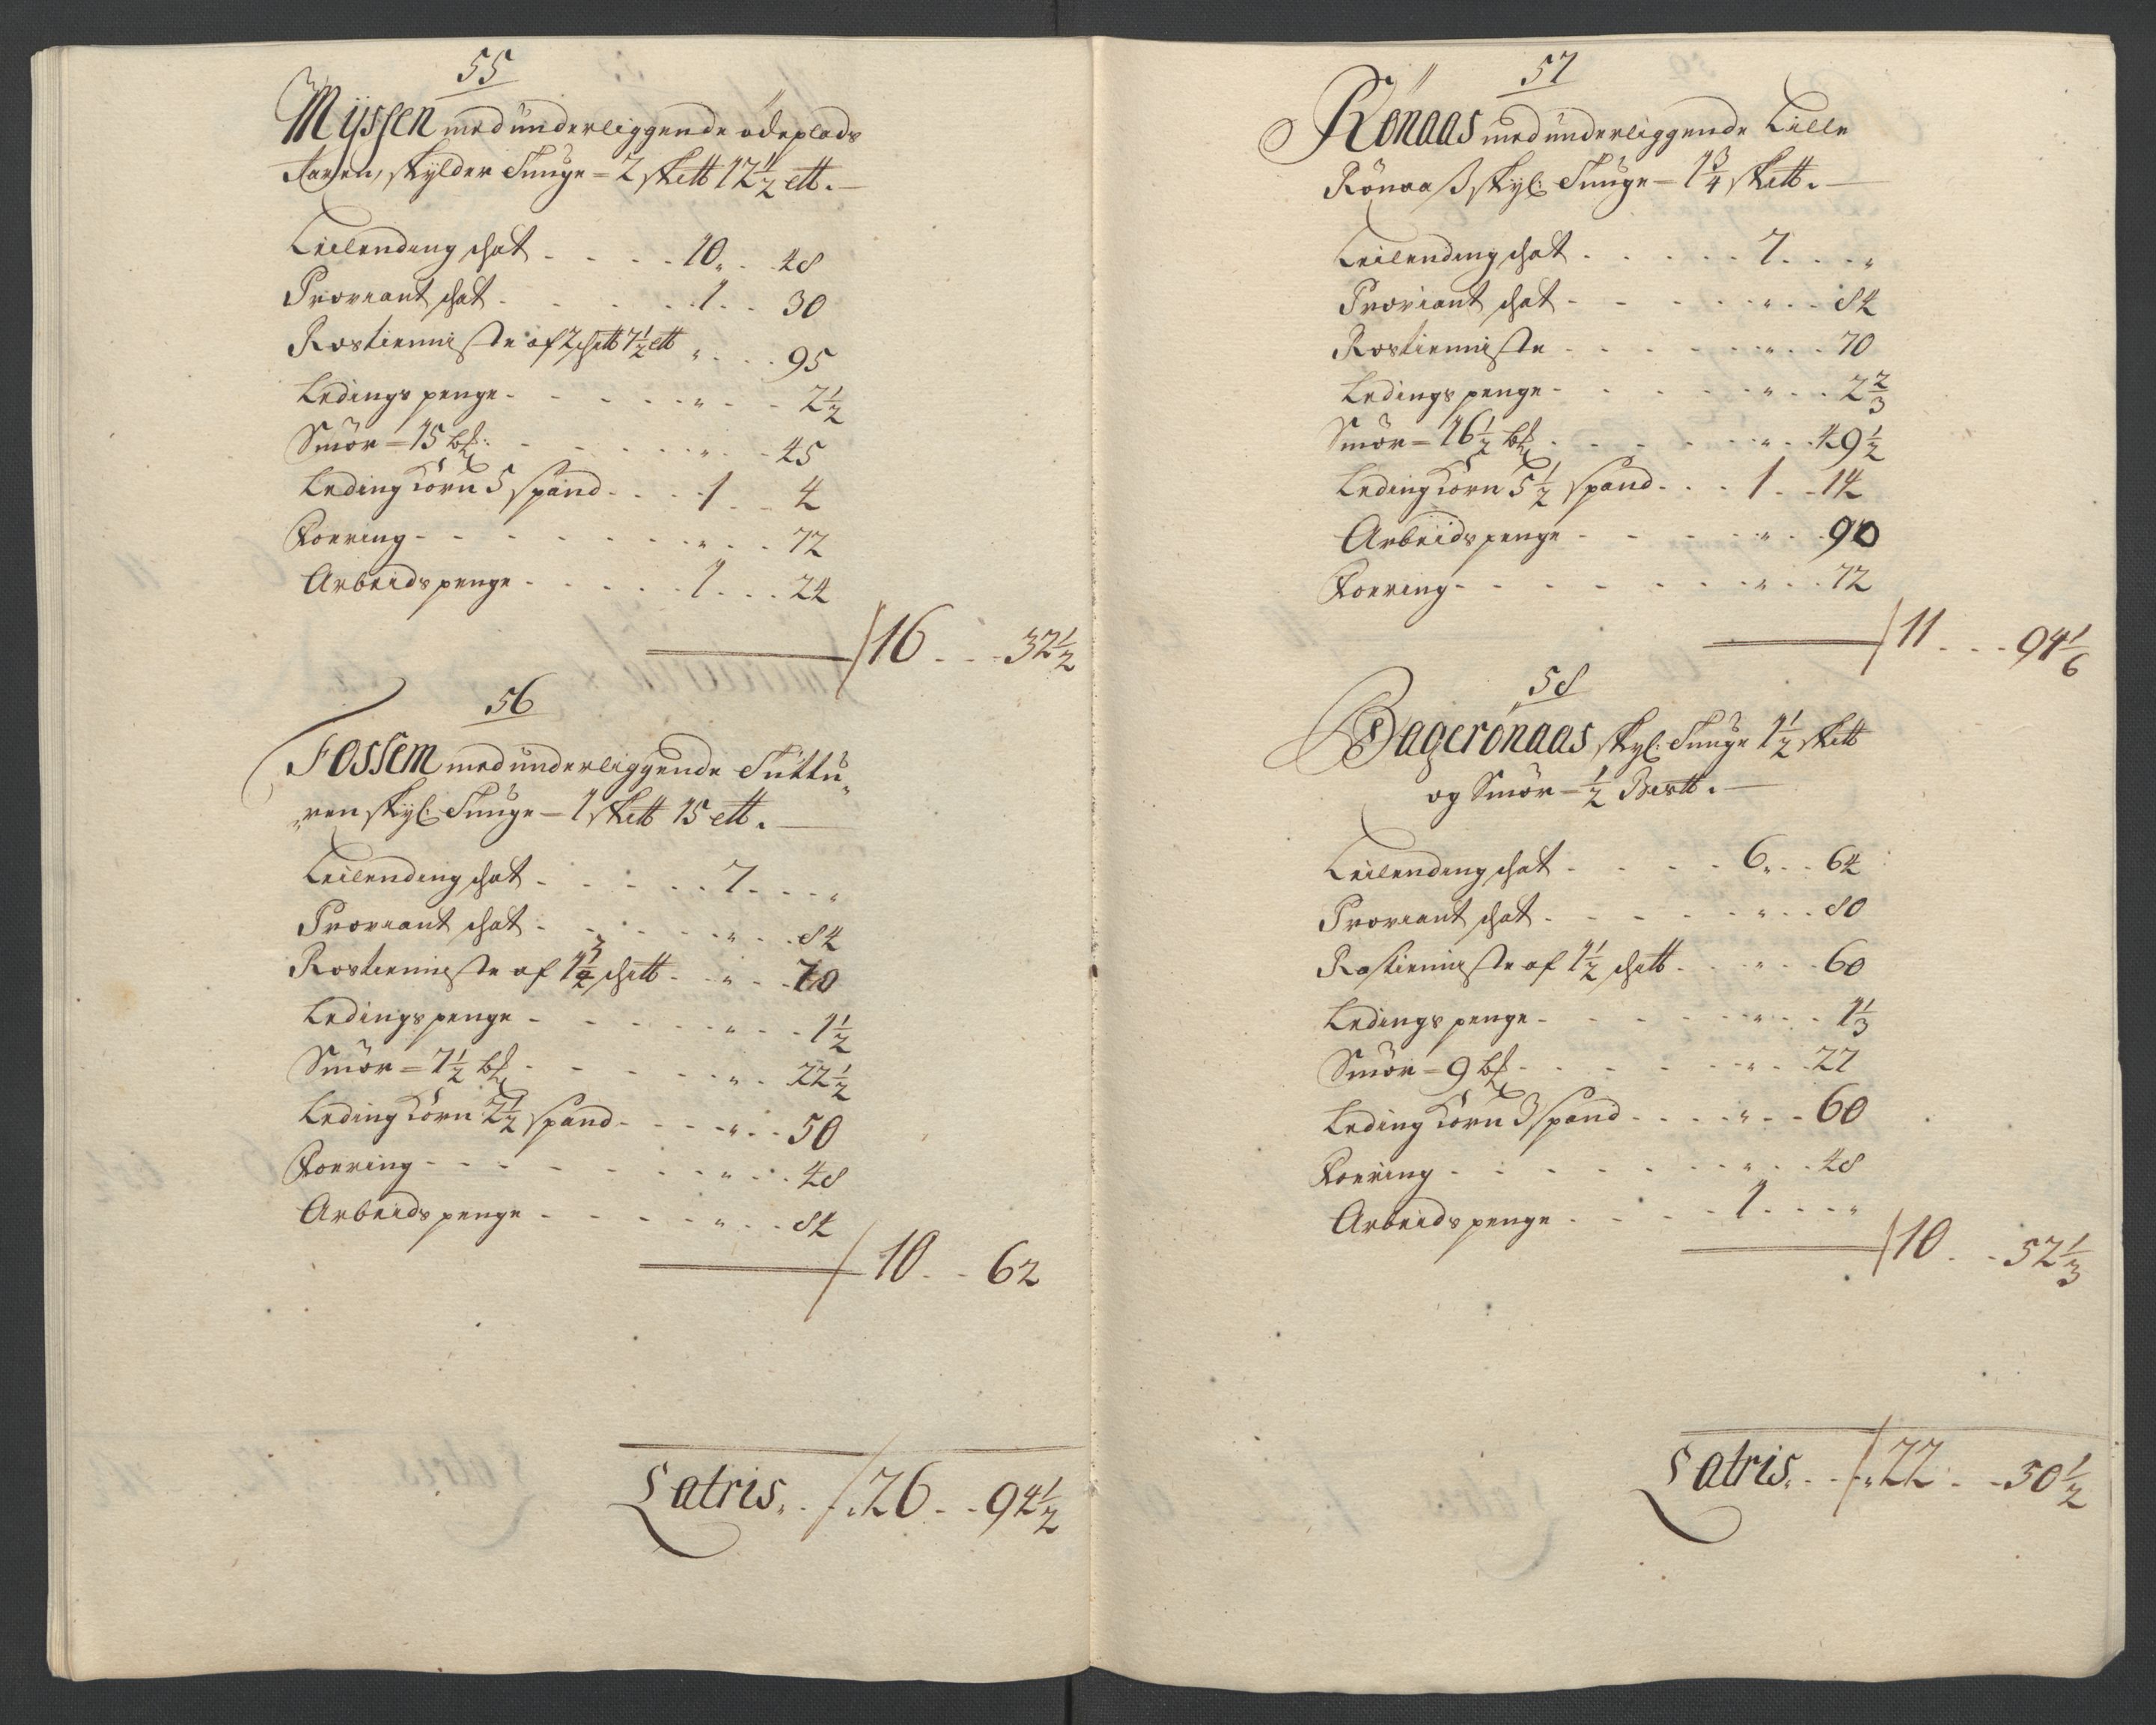 55
Myssen med underliggende ödeplads
skÿlder Tunge = 2 skett 12 1/2 ett.
Leilending schat - - - - 10 „ - 48
Proviant schat - - - - - 1 - - 30
Rostienniste af 2 schett 7 1/2 ett „ - - - 95
Ledings penge - - - - - „ - - - 2 1/2
Smör = 15 bß: - - - - - „ - - 45
Leding Korn 5 spand - - - 1 - - 4
Foering - - - - - - - „ - - 72
Arbeids penge - - - - - 1 - - - 24
16 - - - 32 1/2
56
Fossem med underliggende Tuttu„
„ren skÿl: Tunge = 1 skett 15 ett.
Leilending schat - - - - - 7 - - - „
Proviant schat - - - - - „ - - 84
Rostienniste af 1 3/4 schett - - „ - - 70
Ledings penge - - - - - „ - - - 1 1/2
Smör = 7 1/2 bß - - - - - „ - 22 1/2
Leding Korn 2 1/2 spand - - - - „ - - 50
Foering - - - - - - - „ - - 48
Arbeids penge - - - - - „ - - 84
10 - - 62
Latris „ - - 26 - - 94 1/2
57
Rönaas med underliggende Lille
Rönaaß skÿl: Tunge = 1 3/4 skett.
Leilending schat - - - - - 7 - - - „
Proviant schat - - - - - „ - - 84
Rostienniste - - - - - „ - - 70
Ledings penge - - - - - „ - - 2 2/3
Smör = 16 1/2 bß - - - - - „ - - 49 1/2
Leding Korn 5 1/2 spand - - - 1 - - 14
Arbeids penge - - - - - „ - - 90
Foering - - - - - - - „ - - 72
11 - - - 94 1/6
58
Bagerönaas skÿl: Tunge 1 1/2 skett
og Smör = 1/2
Leilending schat - - - - 6 „ - - 64
Proviant schat - - - - - „ - - 80
Rostienniste af 1 1/2 schett - - - „ - - 60
Ledings penge - - - - - „ - - 1 1/3
Smör = 9 bß - - - - - „ - - 27
Leding Korn 3 spand - - - - „ - - 60
Foering - - - - - - - „ - - 48
Arbeids penge - - - - - 1 - - - „
10 - - 52 1/3
Latris „ - - 22 - - 50 1/2